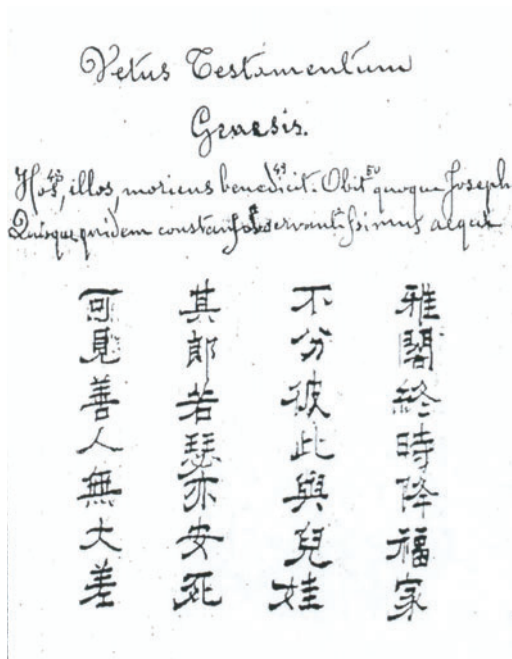 Vetus Testamentum
Genesis.
Hos, 48 illos, moriens benedicit. 49 Obit 50 quoque Joseph
Quisque quidem constans observantissimus aeque
雅閣終時降福家
不分彼此與兒娃
其郎若瑟亦安死
可見善人無大差